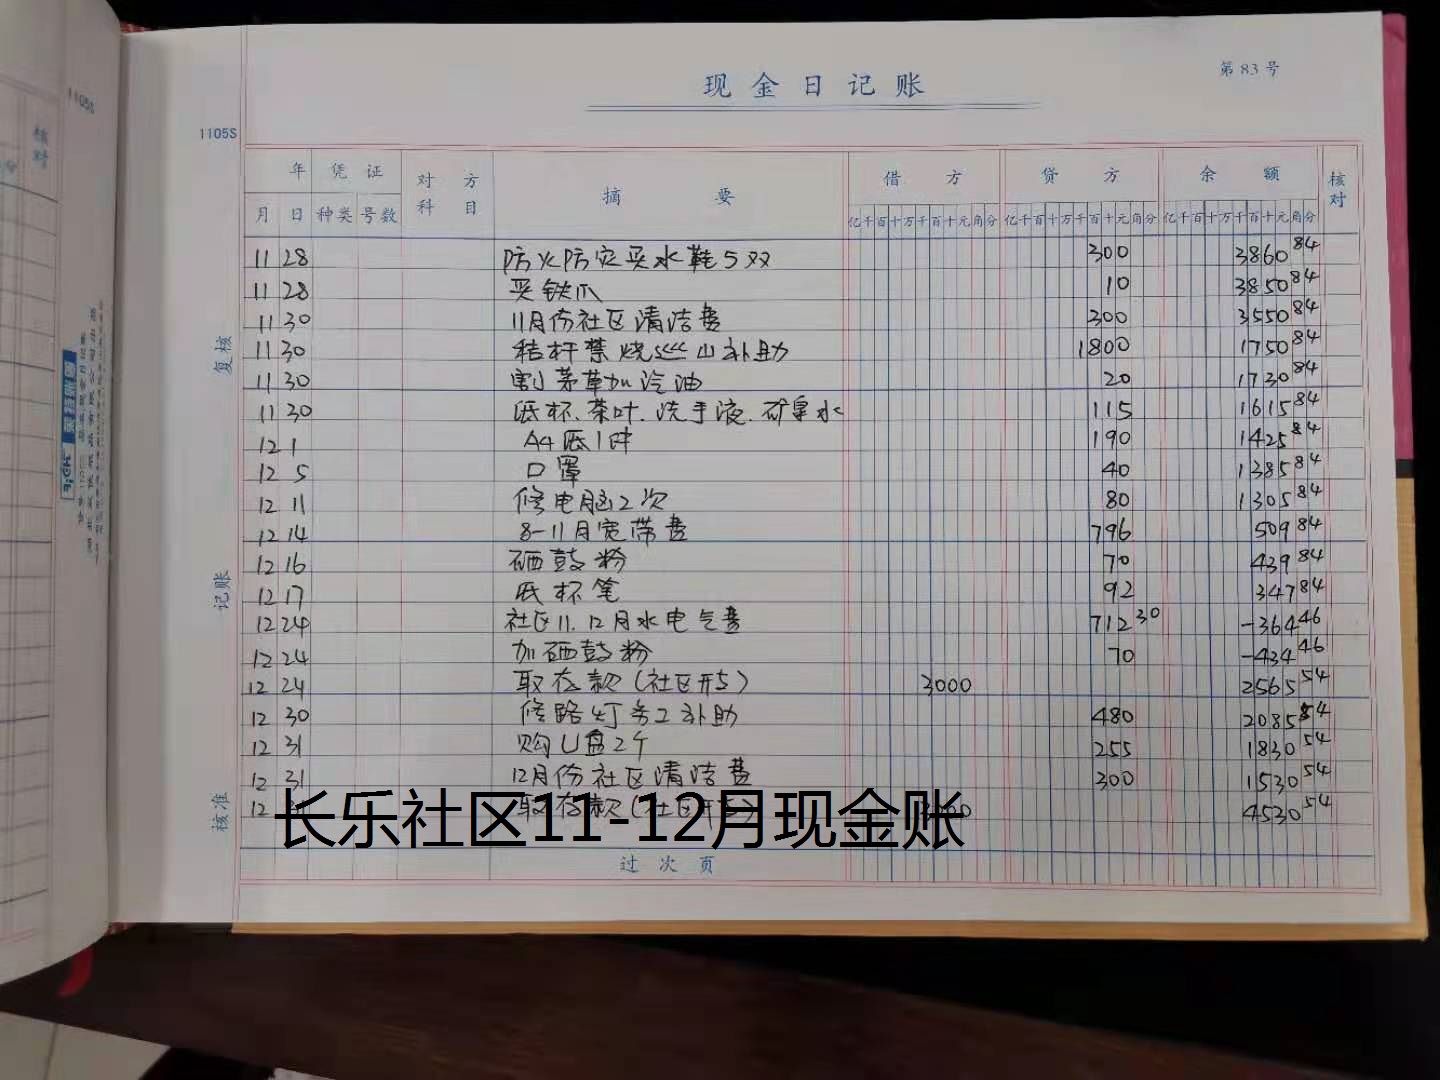 第 83 号
现金日记账
1105S
年 凭证 对方科目 摘要 借方 贷方 余额 核对
月 日 种类 号数 亿千百十万千百十元角分 亿千百十万千百十元角分 亿千百十万千百十元角分
11 28 防火防灾买水鞋5双 300 3860 84
11 28 买铁爪 10 3850 84
11 30 11月份社区清洁费 300 3550 84
11 30 秸杆禁烧巡山补助 1800 1750 84
11 30 割茅草加汽油 20 1730 84
11 30 纸杯、茶叶、洗手液、矿泉水 115 1615 84
12 1 A4纸1件 190 1425 84
12 5 口罩 40 1385 84
12 11 修电脑2次 80 1305 84
12 14 8-11月宽带费 796 509 84
12 16 硒鼓粉 70 439 84
12 17 纸杯笔 92 347 84
12 24 社区11.12月水电气费 712 30 -364 46
12 24 加硒鼓粉 70 -434 46
12 24 取存款(社区开支) 3000 2565 54
12 30 修路灯务工补助 480 2085 54
12 31 购U盘2个 255 1830 54
12 31 12月份社区清洁费 300 1530 54
12 取存款(社区开支) 3000 4530 54
长乐社区11-12月现金账
过次页
复核
记账
核准
1105S
核对